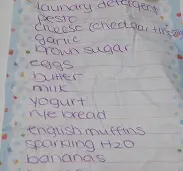 laundry detergent
pesto
cheese (cheddar
garlic
brown sugar
eggs
butter
milk
yogurt
rye bread
english muffins
sparkling H2O
bananas